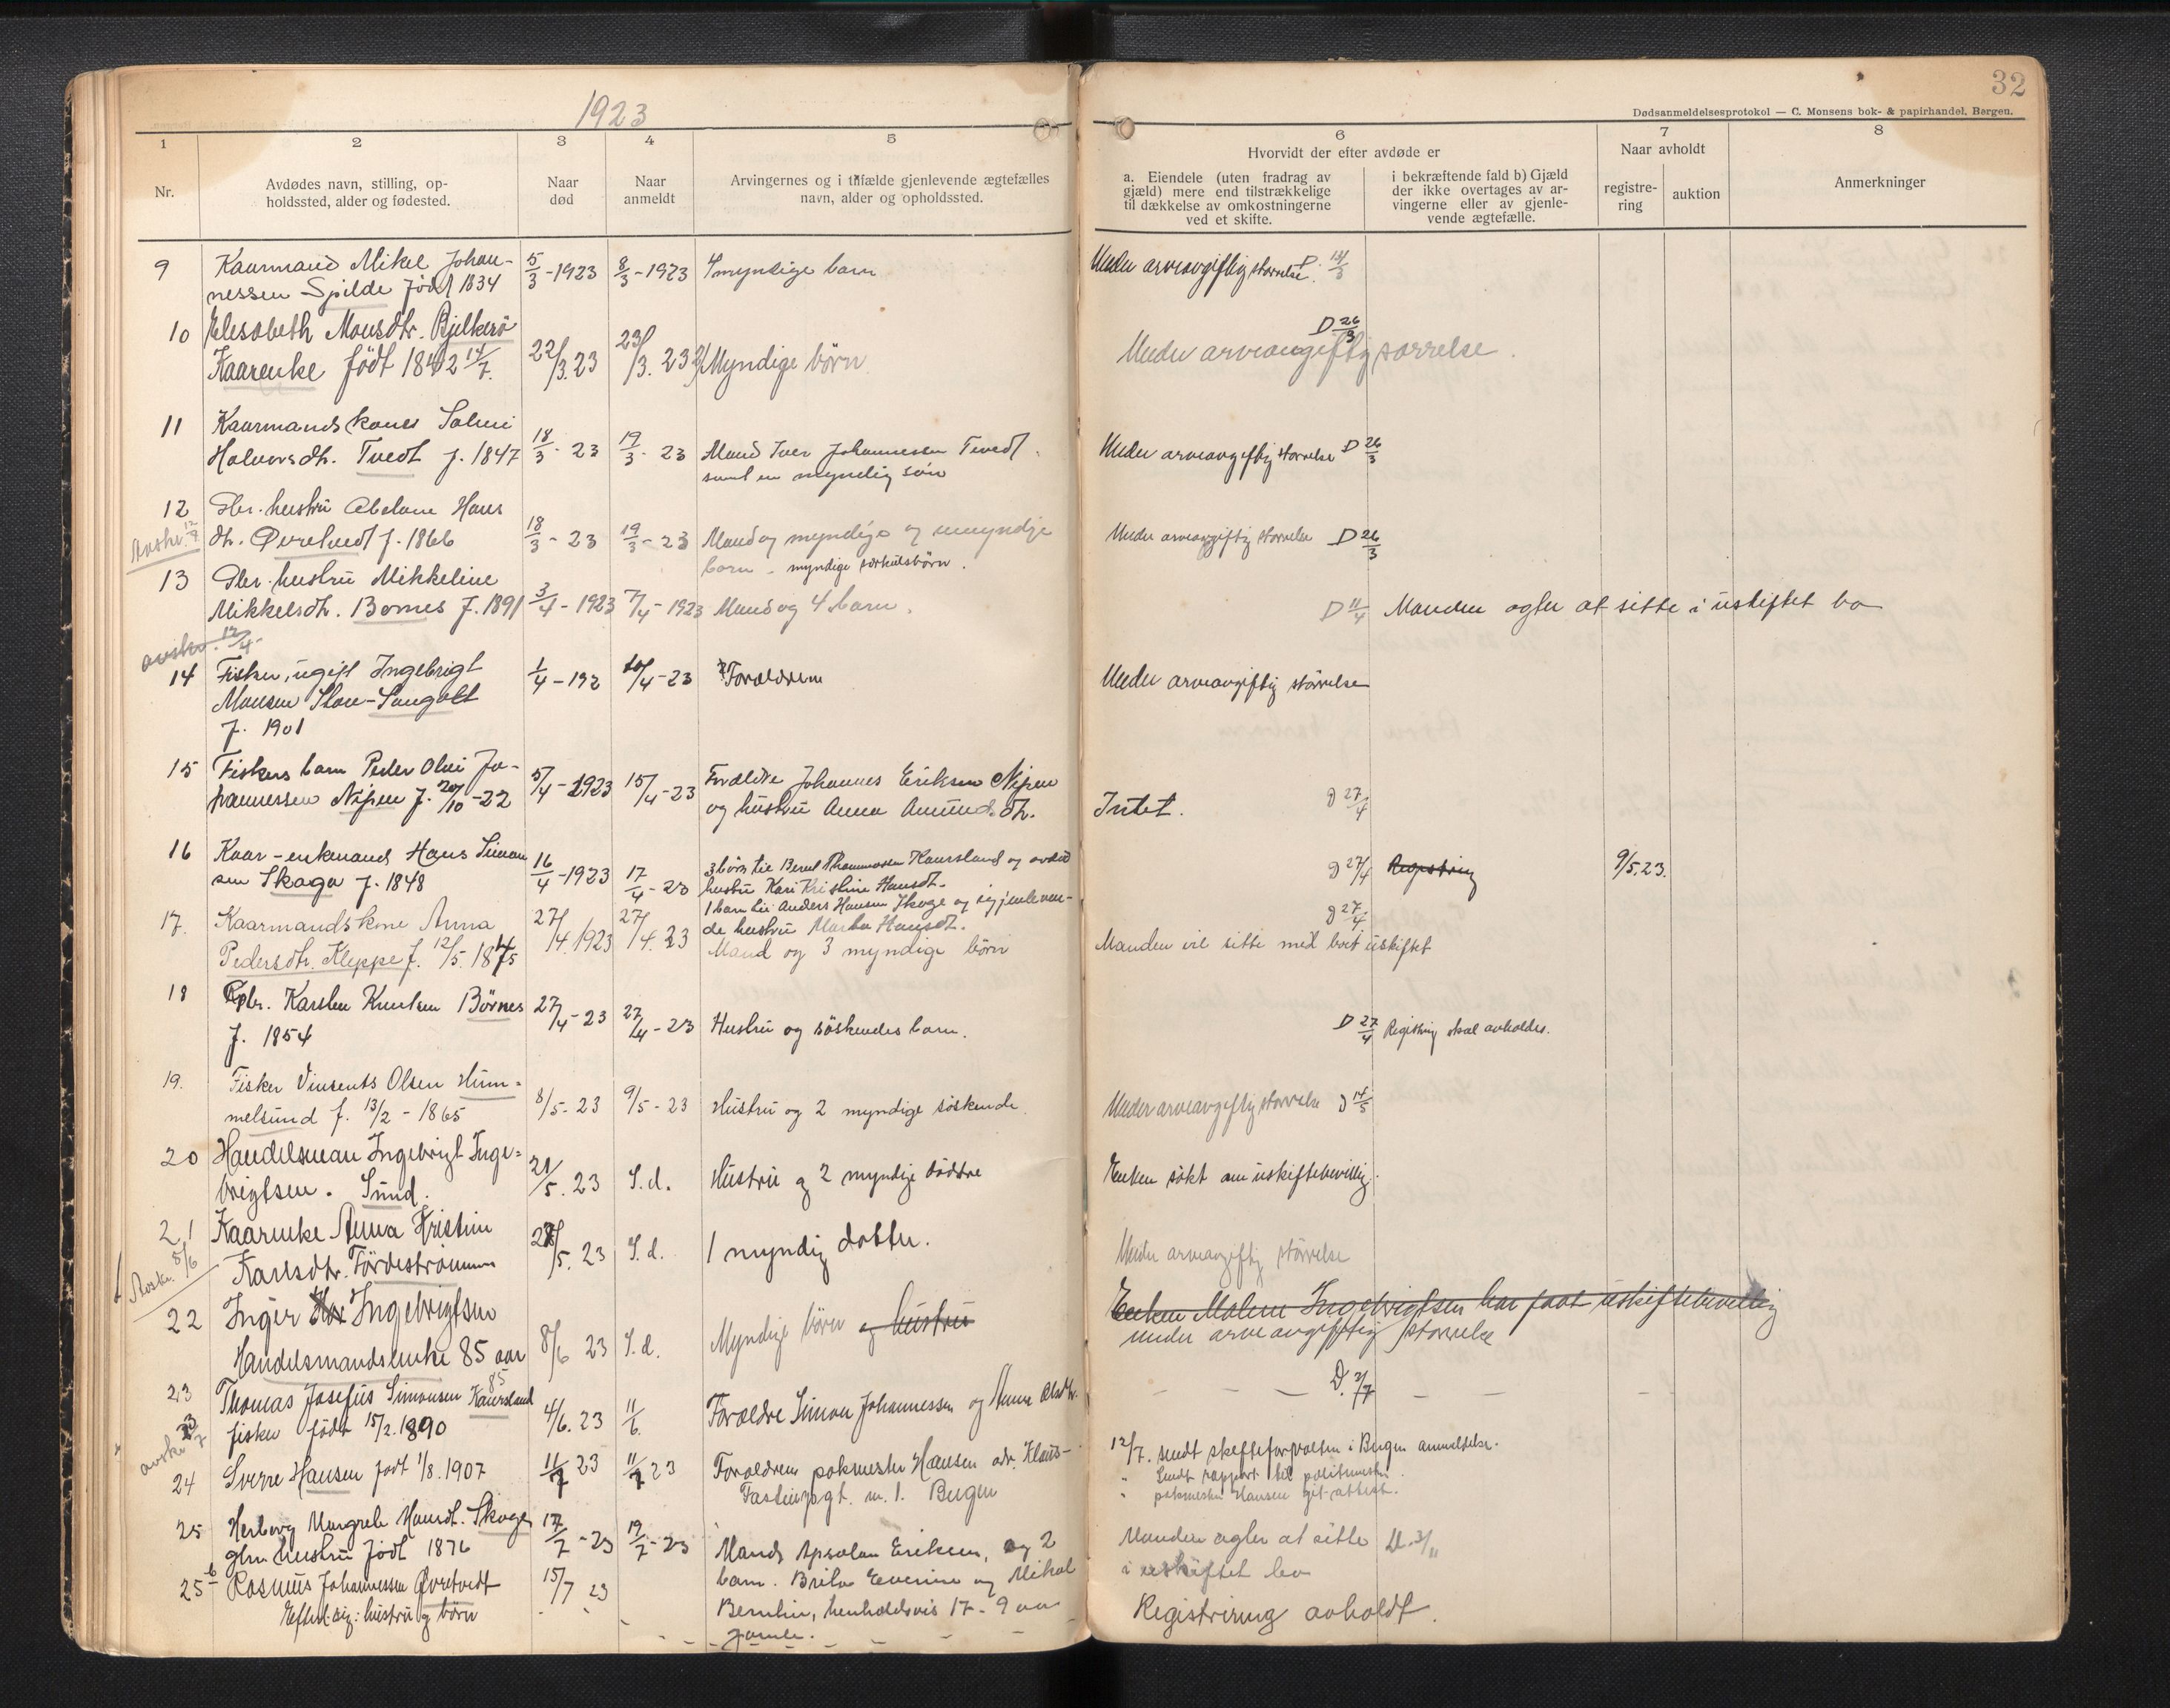 1923
32
Dødsanmeldelsesprotokol — C. Monsens bok- & papirhandel, Bergen.
1 2 3 4 5 6 7 8
Nr.
Avdødes navn, stilling, op-
holdssted, alder og fødested.
Naar
død
Naar
anmeldt
Arvingernes og i tilfælde gjenlevende ægtefælles
navn, alder og opholdssted.
Hvorvidt der efter avdøde er
a. Eiendele (uten fradrag av
gjæld) mere end tilstrækkelige
til dækkelse av omkostningerne
ved et skifte.
i bekræftende fald b) Gjæld
der ikke overtages av ar-
vingerne eller av gjenle-
vende ægtefælle.
Naar avholdt
registre-
ring
auktion
Anmerkninger
9 Kaarmand Mikel Johan-
nessen Spilde född 1834 5/3-1923 8/3-1923 4 myndige barn Under arveavgiftig størrelse D.
10 Elesabeth Monsdtr. Bjelkerö
Kaarenke födt 1842 14/7. 22/3.23 23/3.23 Myndige börn Under arveavgiftig størrelse. D 26/3
11 Kaarmandskone
Halvorsdtr. Tvedt f. 1847 18/3-23 19/3-23 Mand Iver Johannessen Tvedt.
samt en myndig sön Under arveavgiftig størrelse D 26/3
12 Gbr. hustru Abelone Hans
dtr. Øvretvedt f. 1866 18/3-23 19/3-23 Mand og myndige og umyndige
barn - myndige særkulsbörn. Under arveavgiftig størrelse D 26/3
13 Gbr. hustru Mikkeline
Mikkelsdtr. Bornes f. 1891 3/4-1923 7/4-1923 Mand og 4 barn. D 11/4 Manden agter at sitte i uskiftet bo
avskr. 12/4-
14 Fisker, ugift Ingebrigt
Monsen Store-Sangolt
f. 1901 1/4-192 10/4-23 Forældrene Under arveavgiftig størrelse
15 Fiskers barn Peder Olai Jo-
hannessen Nipen f. 20/10-22 5/4-1923 15/4-23 Forældre Johannes Eriksen Nipen
og hustru Anna Amunds. dtr. Intet. D 27/4
16 Kaar-enkmand Hans Simon
sen Skaga f. 1848 16/4-1923 17/4-23 3 börn til Bernt Thomassen Kaursland og avdöd
hustru Kari Kristine Hansdt.
1 barn til Anders Hansen Skoge og gjenleven-
de hustru Marta Hansdt. D 27/4 Registring 9/5.23.
17. Kaarmandskone Anna
Pedersdtr. Kleppe f. 12/5.1875 27/4.1923 27/4.23 Mand og 3 myndige börn Manden vil sitte med boet uskiftet D 27/4
18 Gbr. Karsten Knutsen Börnes
f. 1854 27/4-23 27/4-23 Hustru og söskendes barn. D 27/4 Registring skal avholdes.
19. Fisker Vinsents Olsen Hum=
melsund f. 13/2-1865 8/5-23 9/5-23 Hustru og 2 myndige söskende Under arveavgiftig størrelse D 14/5
20 Handelsman Ingebrigt Inge=
brigtsen. Sund. 21/5.23 S.d. Hustru og 2 myndige dödtre Enken sökt om uskiftebevillig.
21 Kaarenke Anna Kristin
Karlsdtr. Fördeströmmen 28/5.23 S.d. 1 myndig datter. Under arveavgiftig størrelse
Avskr. 8/6
22 Inger Ingebrigtsen
Handelsmandsenke 85 aar 8/6 23 S.d. Myndige börn og hustru Enken Malene Ingebrigtsen har faat uskiftebevillig
under arveavgiftig størrelse
23 Thomas Josefus Simonsen Kaursland
fisker födt 15/2.1890 4/6.23 11/6. Forældre Simon Johannessen og Anna Olsdtr. D. 2/7
24 Sverre Hansen födt 1/8.1907 11/7 23 11/7 23 Forældrene politimester Hansen adr. Klaus-
Bergen 12/7. sendt skifteforvalteren i Bergen anmeldelse.
" Sendt rapport til politimester.
" Hansen git attest.
25 Herborg Margrete Hansdt. Skoge
gbr. hustru födt 1876 17/7-23 19/7-23 Mand Apsolon Eriksen, og 2
barn. Brita Everine og Mikal
Berntin, henholdsvis 17-9 aar
gamle. Manden agter at sitte
i uskiftet bo D. 3/11
25 b Rasmus Johannessen Øvretvedt
Efterl. sig: hustru og börn 15/7 23 Registrering avholdt.